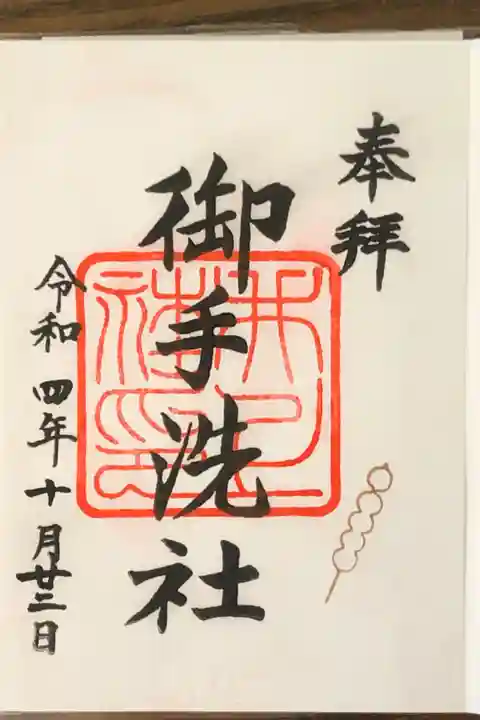 奉拝
御手洗社
令和四年十月廿二日